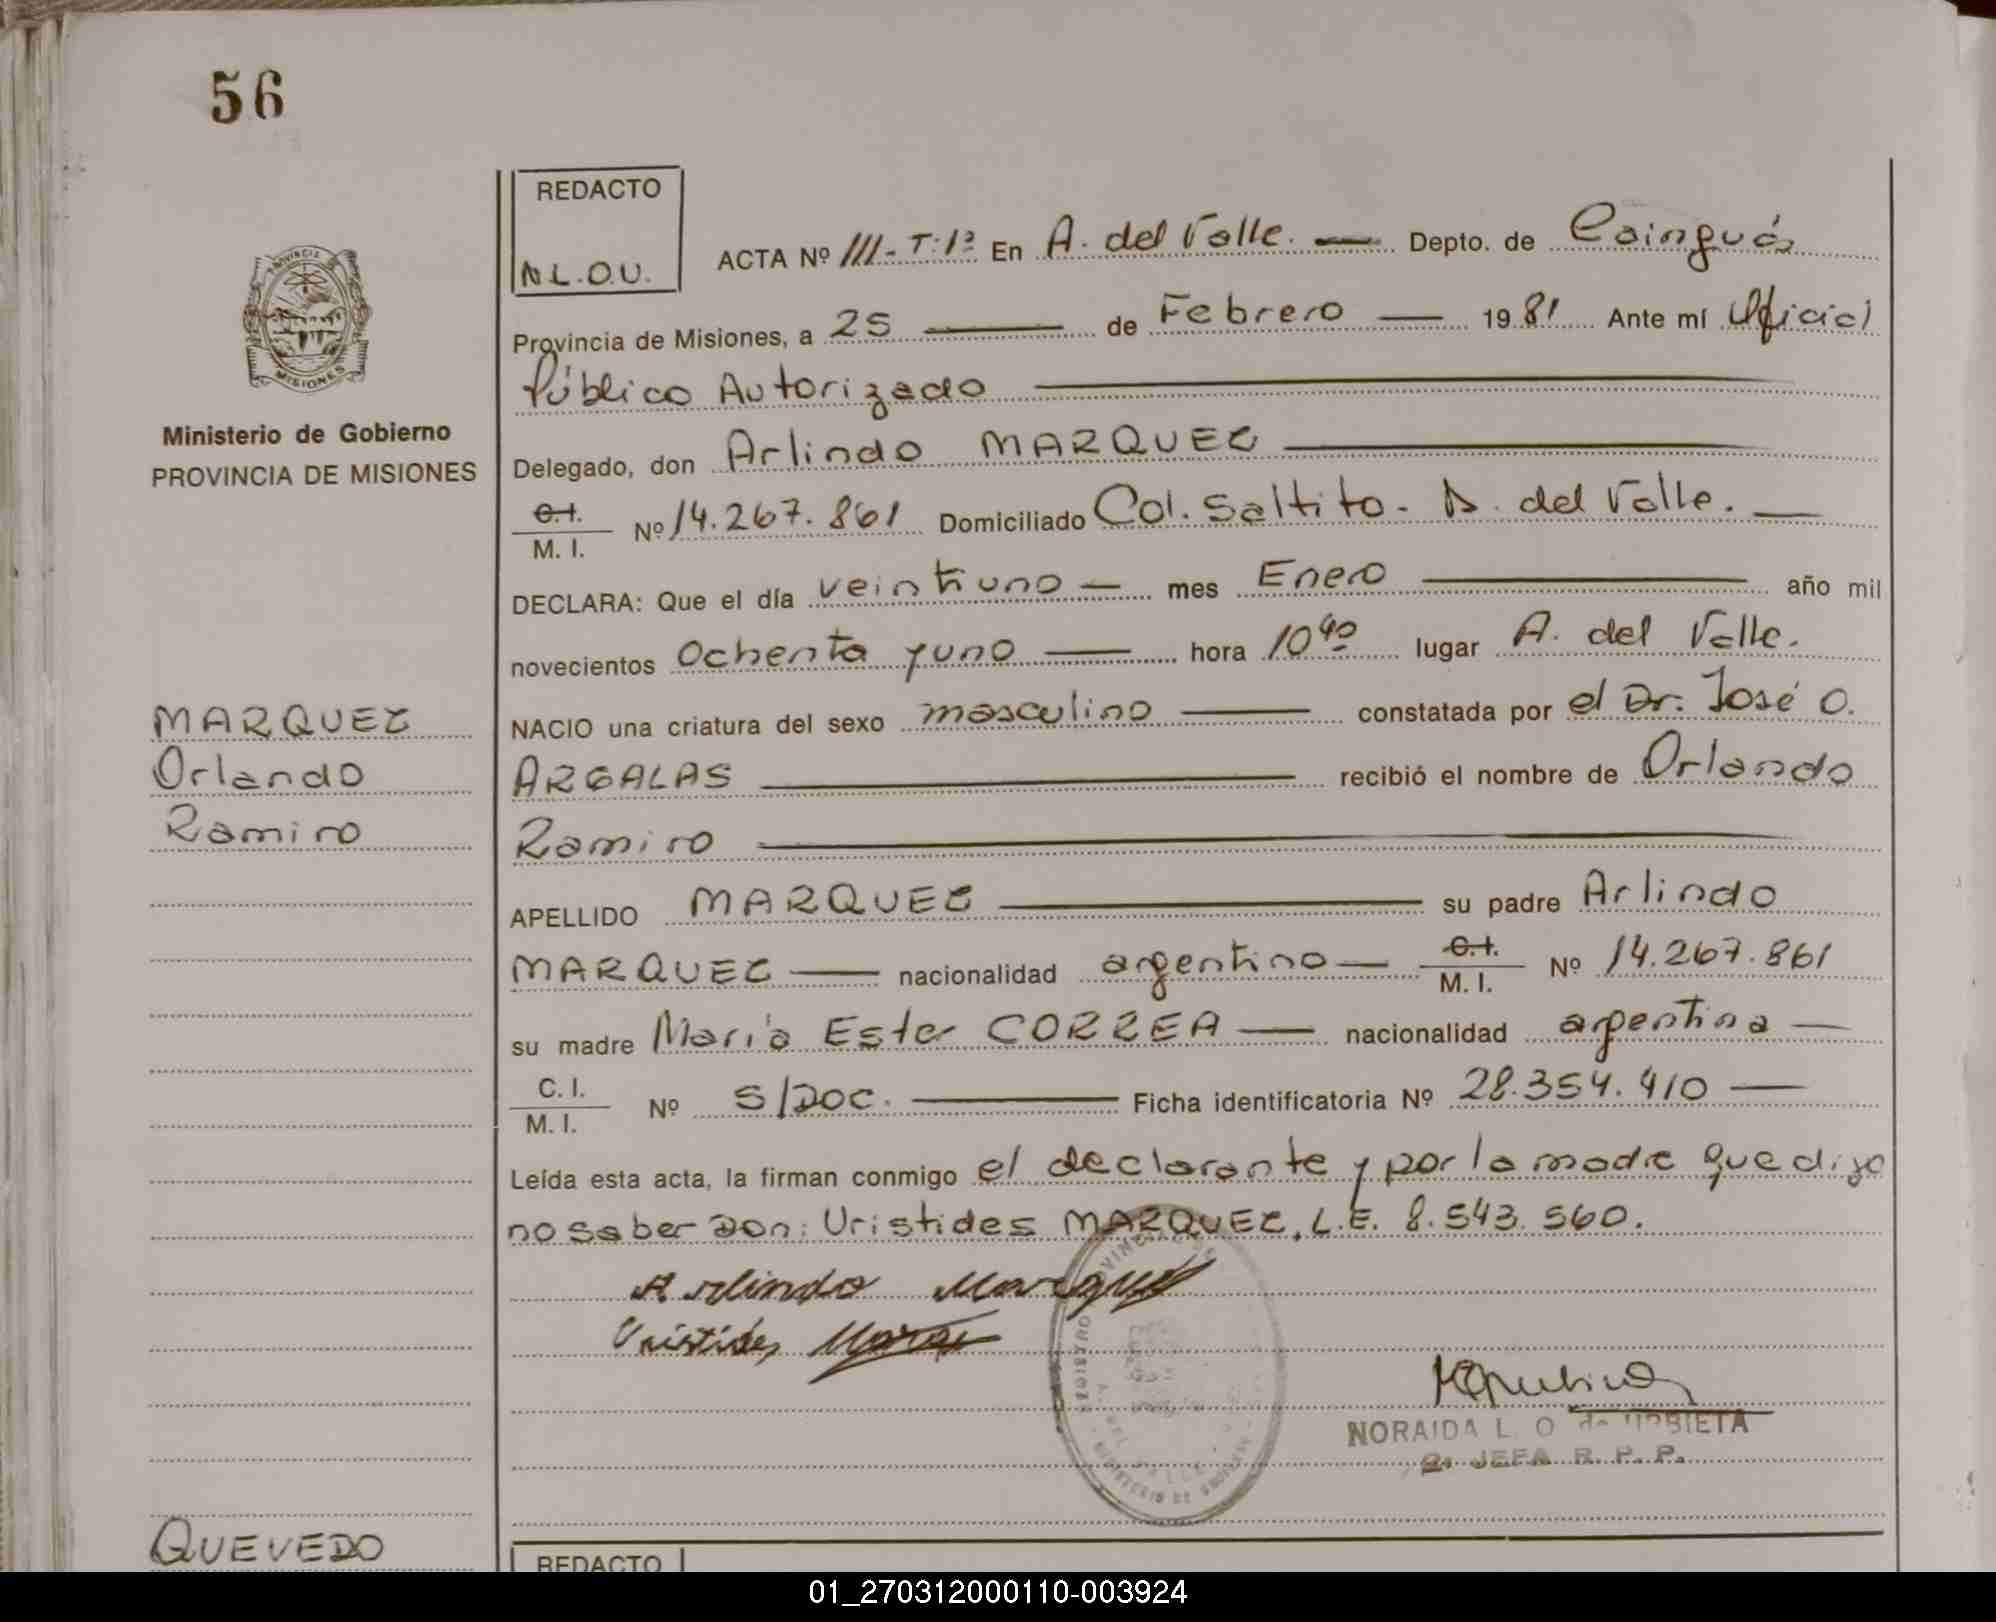 56
REDACTO
N.L.O.U.
ACTA Nº 111-T:1ª En A. del Valle. Depto. de Cainguás
Provincia de Misiones, a 25 de Febrero 1981 Ante mí Oficial
Público Autorizado
PROVINCIA
MISIONES
Ministerio de Gobierno
PROVINCIA DE MISIONES
Delegado, don Arlindo MARQUEZ
C.I.
M. I. Nº 14.267.861 Domiciliado Col. Saltito - A. del Valle.
DECLARA: Que el día veintiuno mes Enero año mil
novecientos Ochenta y uno hora 10 40 lugar A. del Valle.
MARQUEZ
Orlando
Ramiro
NACIO una criatura del sexo masculino constatada por el Dr: José O.
ARGALAS recibió el nombre de Orlando
Ramiro
APELLIDO MARQUEZ su padre Arlindo
MARQUEZ nacionalidad argentino C.I. M. I. Nº 14.267.861
su madre María Ester CORREA nacionalidad argentina
C. I.
M. I. Nº S/DOC. Ficha identificatoria Nº 28.354.410
Leída esta acta, la firman conmigo el declarante y por la madre que dijo
no saber Don: Uristides MARQUEZ, L.E. 8.543.560.
Arlindo Marquez
Uristides
NORAIDA L. O de URBIETA
JEFA R. P. P.
QUEVEDO
REDACTO
01_270312000110-003924